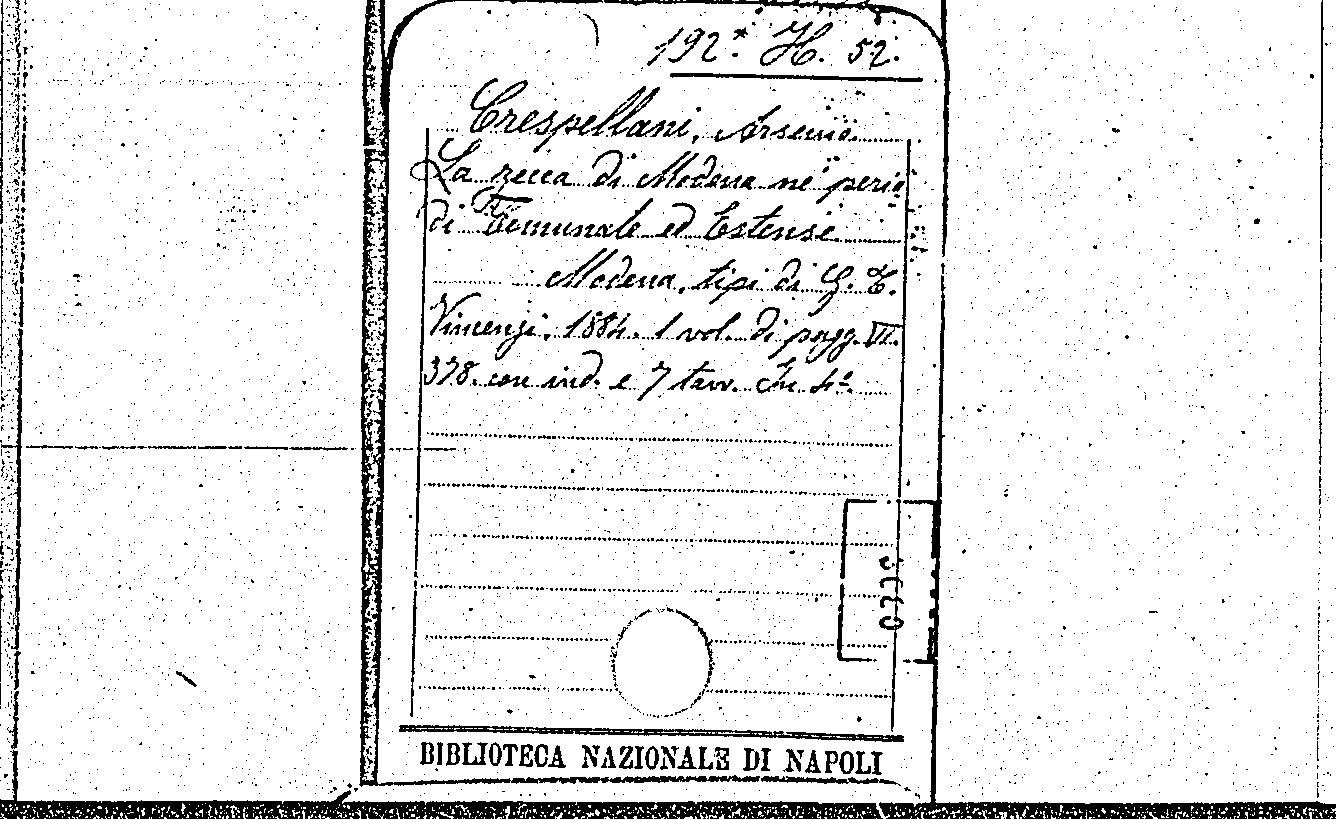 192.* H. 52.
Crespellani, Arsenio.
La zecca di Modena ne' perio
di Comunale ed Estense
Modena, tipi di G. T.
Vincenzi, 1884. 1 vol. di pagg. VI.
378. con ind. e 7 tavv. In 4º.
BIBLIOTECA NAZIONALE DI NAPOLI